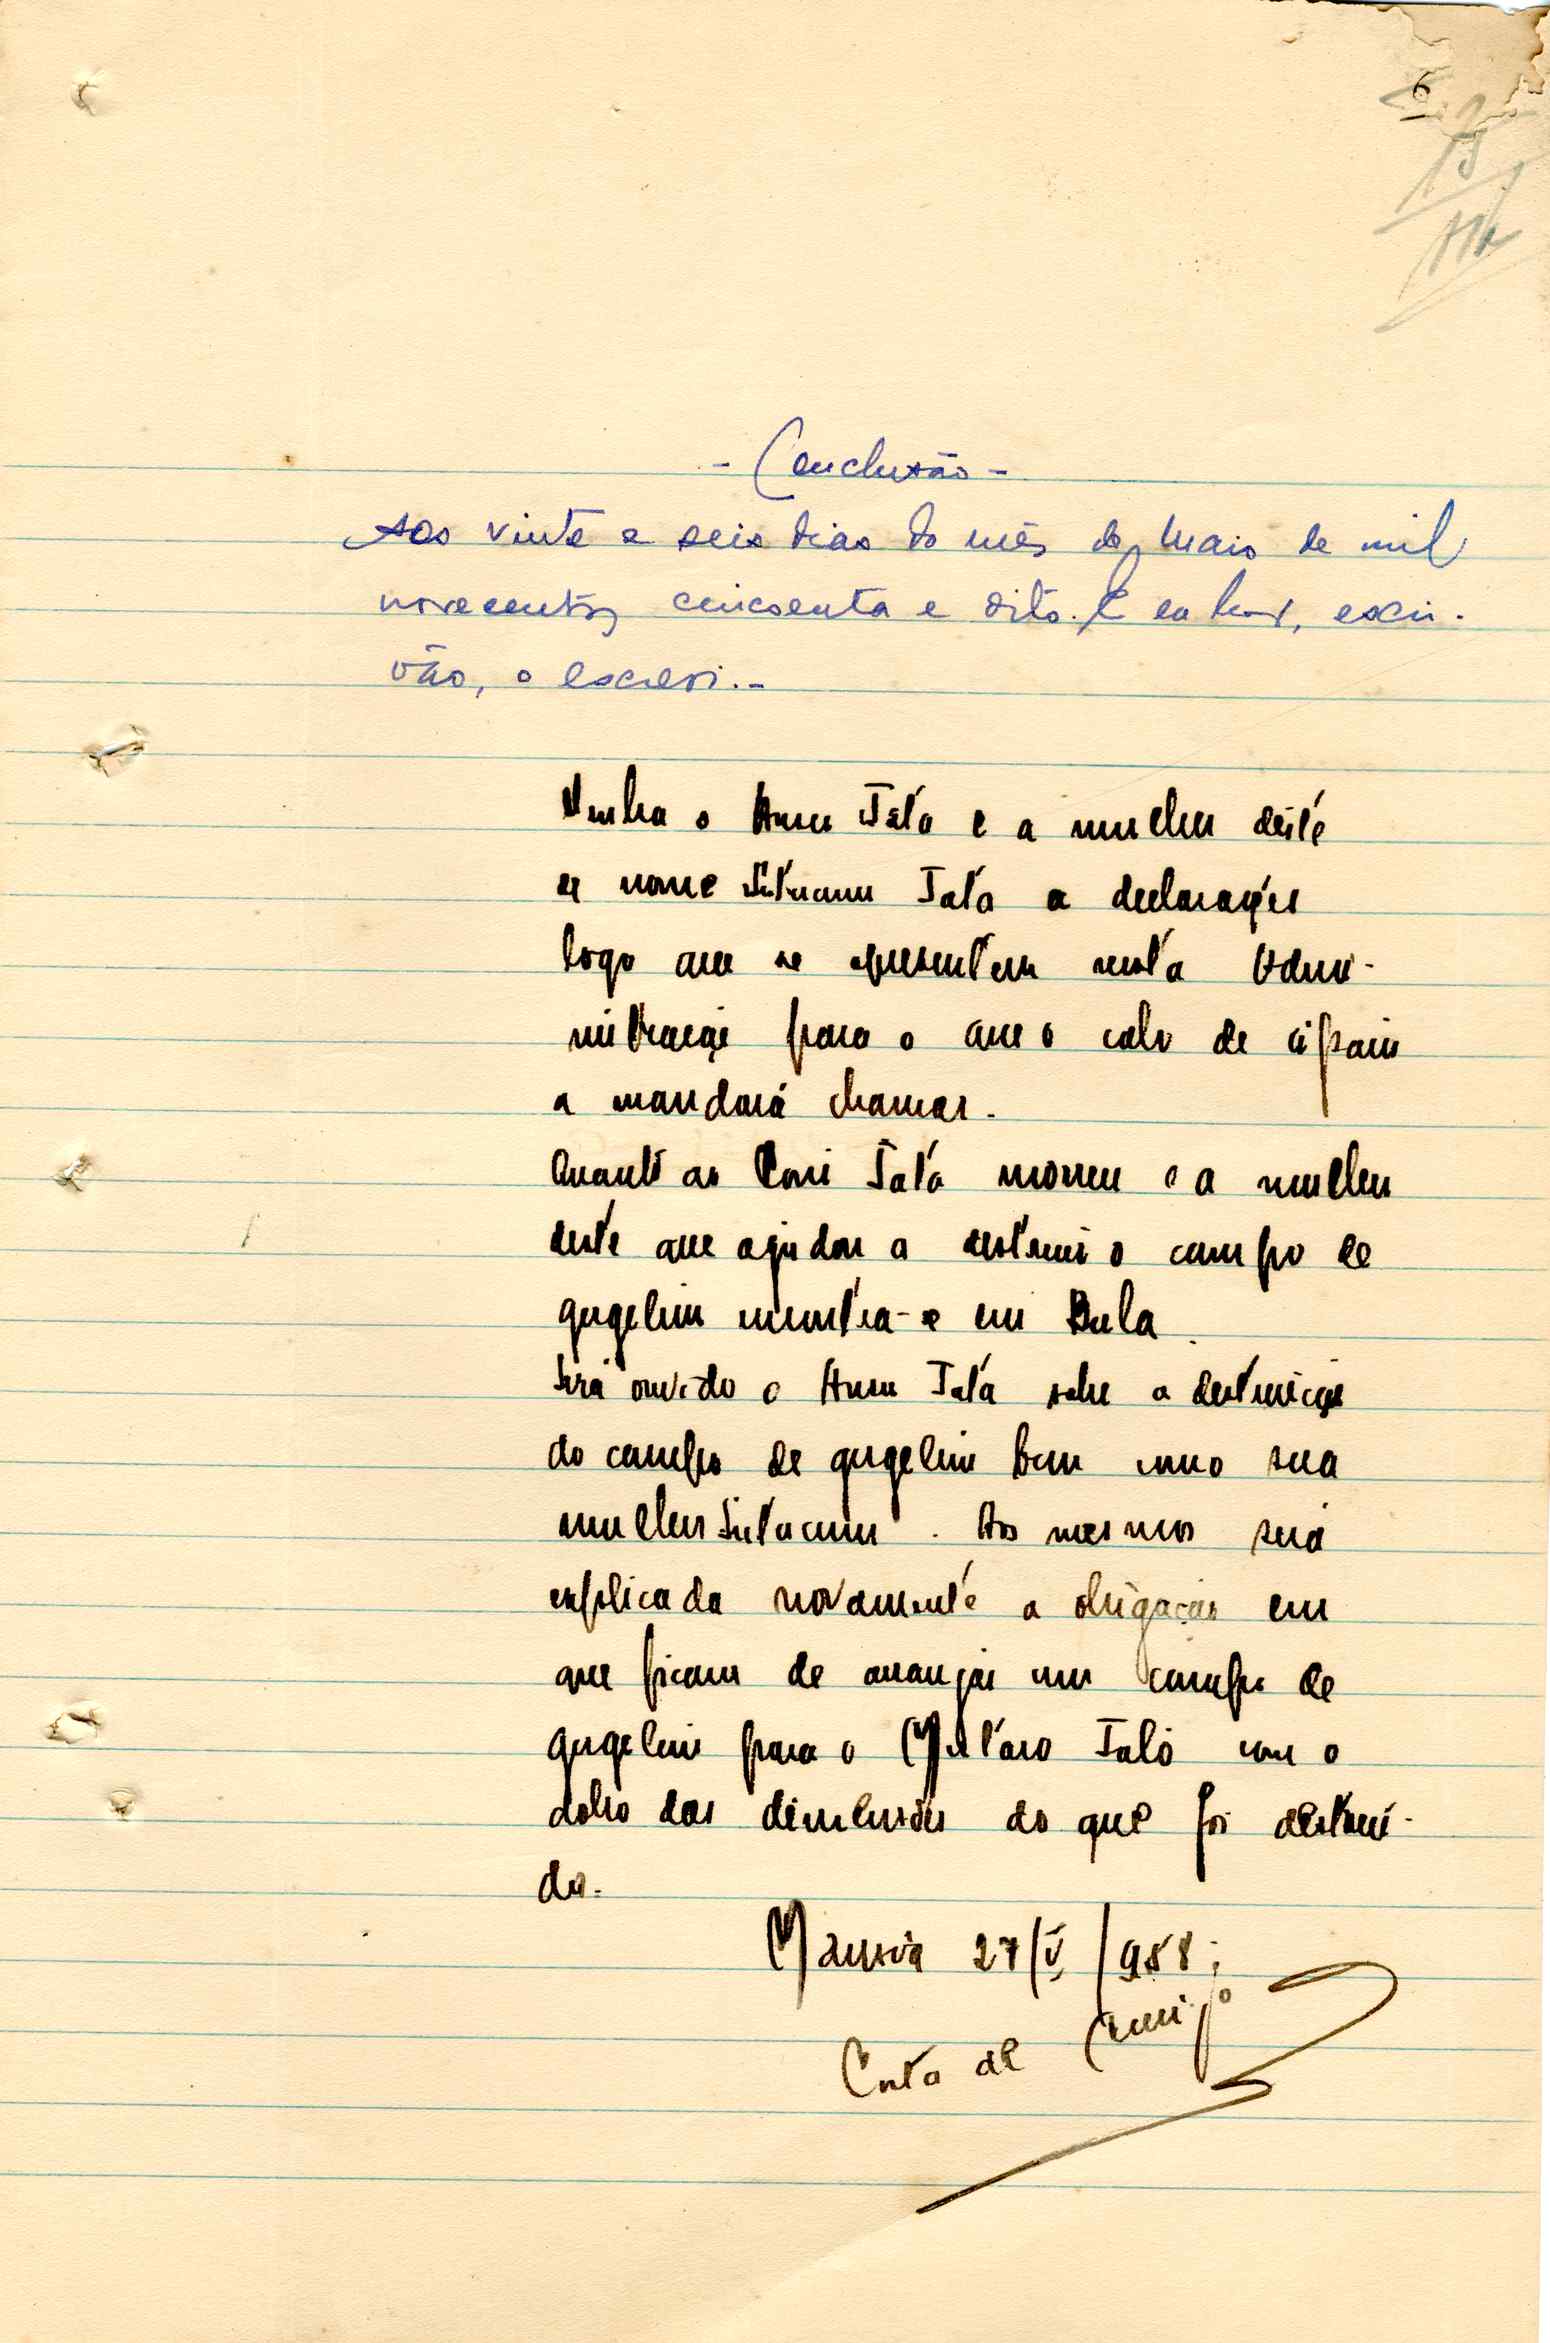 6
- Conclusão -
Aos vinte e seis dias do mês de Maio de mil
novecentos cincoenta e oito. E eu escri-
vão, o escrevi.-
Venha o Ansu Jatá e a mulher deste
de nome Jatá a declarações
logo que se apresentem nesta Admi-
nistração para o que o cabo de cipais
a mandará chamar.
Quanto ao Jatá morreu e a mulher
deste que ajudou a destruir o campo de
gergelim encontra-se em Bula.
Será ouvido o Ansu Jatá sobre a destruição
do campo de gergelim bem como sua
mulher. Aos mesmos será
explicada novamente a obrigação em
que ficam de arranjar um campo de
gergelim para o Jaló com o
dobro das dimensões do que foi destrui-
do.
Mansoa 27/V/958;
Costa de